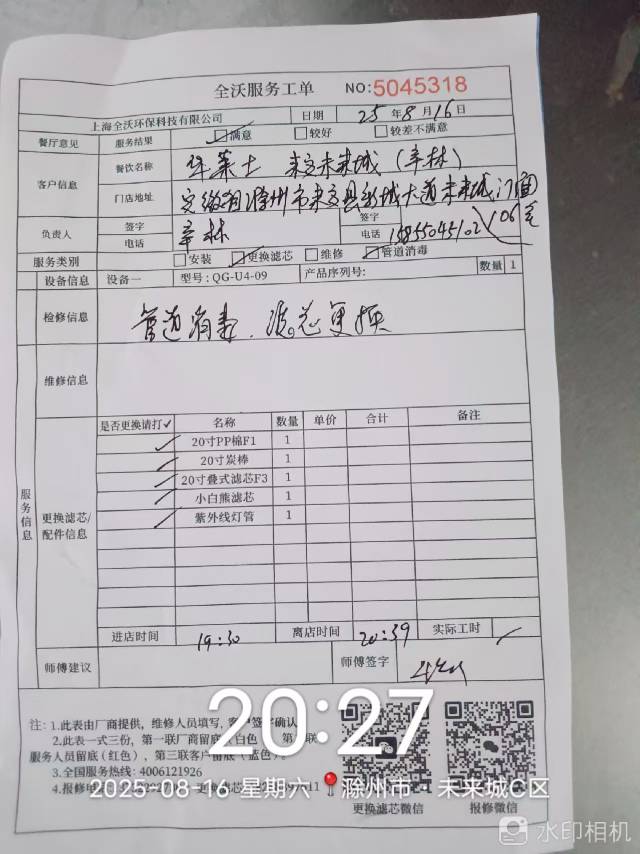 全沃服务工单 NO:5045318
上海全沃环保科技有限公司 日期 25年8月16日
餐厅意见 服务结果 满意 较好 较差不满意
客户信息 餐饮名称 华莱士 来安未来城(辛林)
门店地址 安徽省滁州市来安县新城大道未来城
负责人 签字 辛林 签字
电话 电话 15855045102
服务类别 安装 更换滤芯 维修 管道消毒
设备信息 设备一 型号: QG-U4-09 产品序列号: 数量 1
检修信息 管道消毒.滤芯更换
维修信息
服务信息
更换滤芯/
配件信息
是否更换请打✓ 名称 数量 单价 合计 备注
✓ 20寸PP棉F1 1
✓ 20寸炭棒 1
✓ 20寸叠式滤芯F3 1
✓ 小白熊滤芯 1
✓ 紫外线灯管 1
进店时间 19:30 离店时间 20:39 实际工时
师傅建议 师傅签字
注: 1.此表由厂商提供，维修人员填写, 客户签字确认
2.此表一式三份, 第一联厂商留底(白色)
服务人员留底(红色), 第三联客户留底(蓝色)
3.全国服务热线: 4006121926
4.报修电
更换滤芯微信 报修微信
20:27
2025-08-16 星期六 滁州市·未来城C区
水印相机